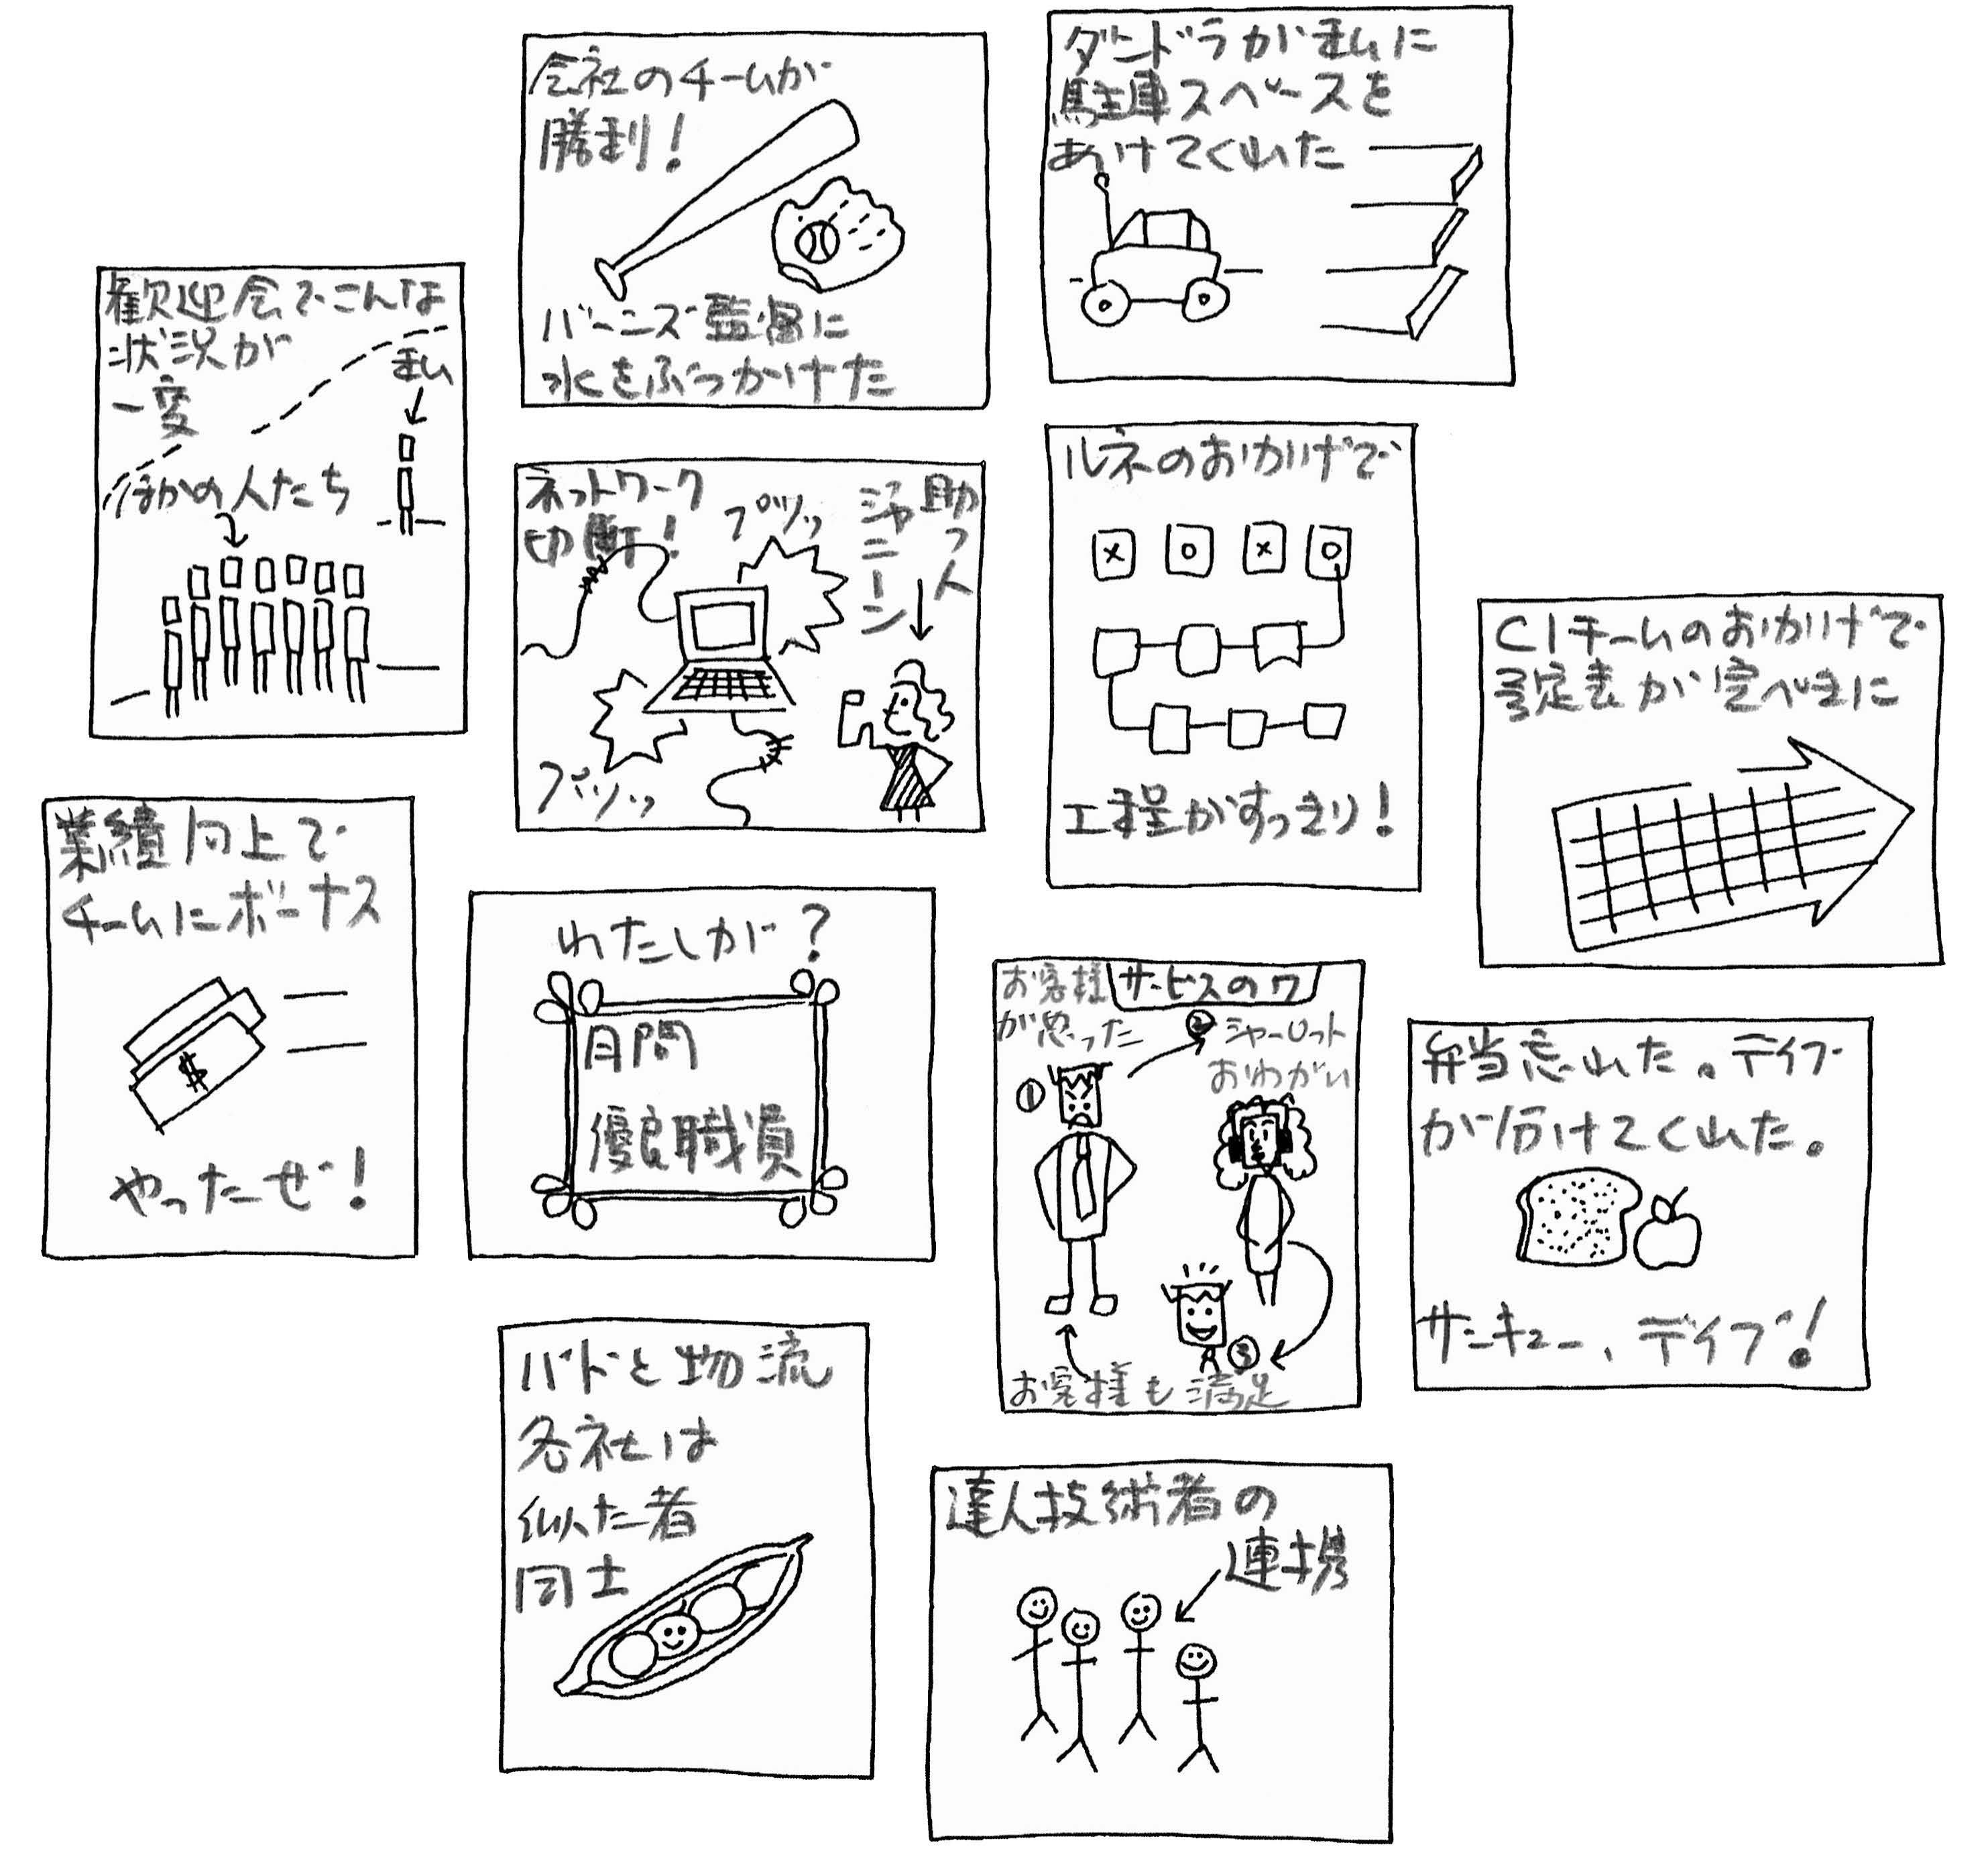 会社のチームが
勝利！
バーニズ監督に
水をぶっかけた
ダンドラが私に
駐車スペースを
あけてくれた
歓迎会でこんな
状況が
一変
私
ほかの人たち
ネットワーク
切断！
プツッ
助っ人
ジャニーン
プツッ
ルネのおかげで
工程がすっきり！
CIチームのおかげで
予定表が完ぺきに
業績向上で
チームにボーナス
やったぜ！
わたしが？
月間
優良職員
お客様
が怒った
サービスのワ
①
② シャーロット
おねがい
③
お客様も満足
弁当忘れた。デイブ
が分けてくれた。
サンキュー、デイブ！
バドと物流
各社は
似た者
同士
達人技術者の
連携